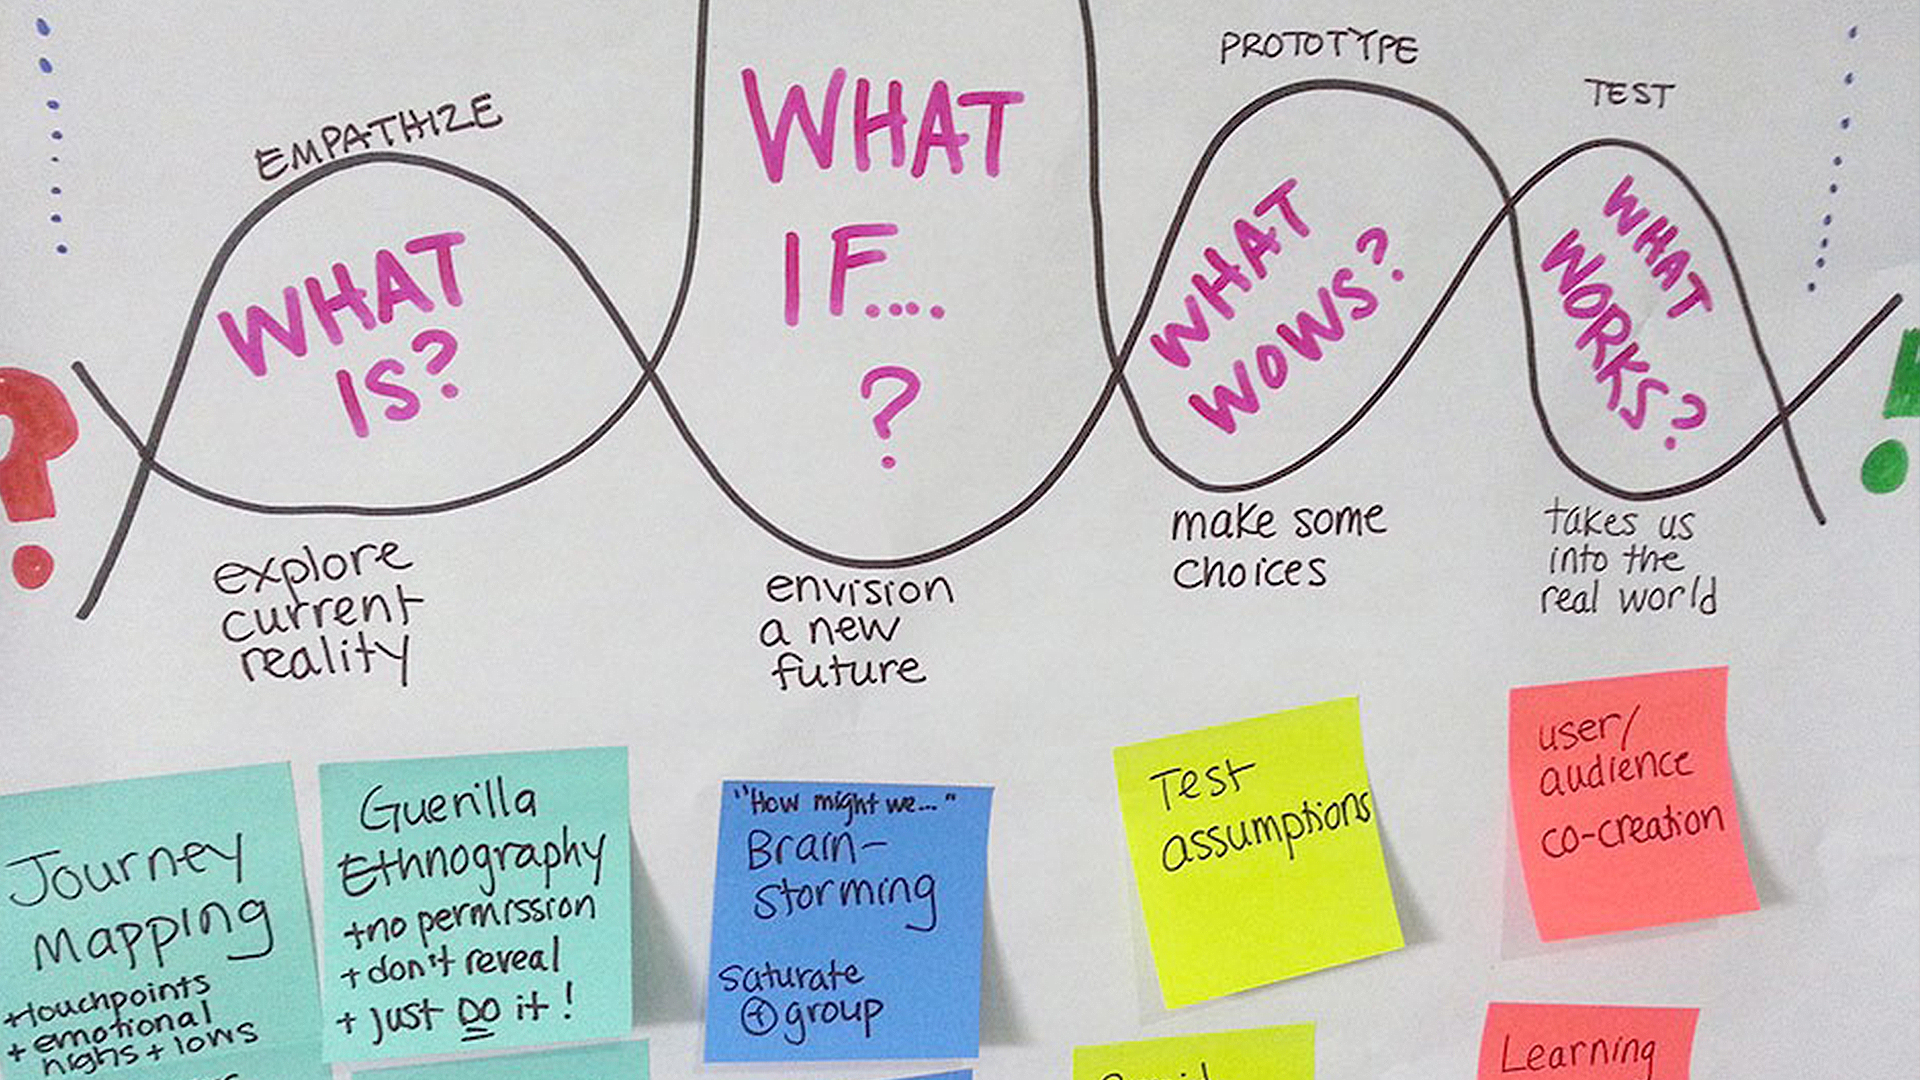 EMPATHIZE
WHAT
IS?
explore
current
reality
WHAT
IF....
?
envision
a new
future
PROTOTYPE
WHAT
WOWS?
make some
choices
TEST
WHAT
WORKS?
takes us
into the
real world
?
!
Journey
Mapping
+touchpoints
+ emotional
highs + lows
Guerilla
Ethnography
+no permission
+don't reveal
+ just DO it!
"How might we..."
Brain-
storming
saturate
+ group
Test
assumptions
user/
audience
co-creation
Learning